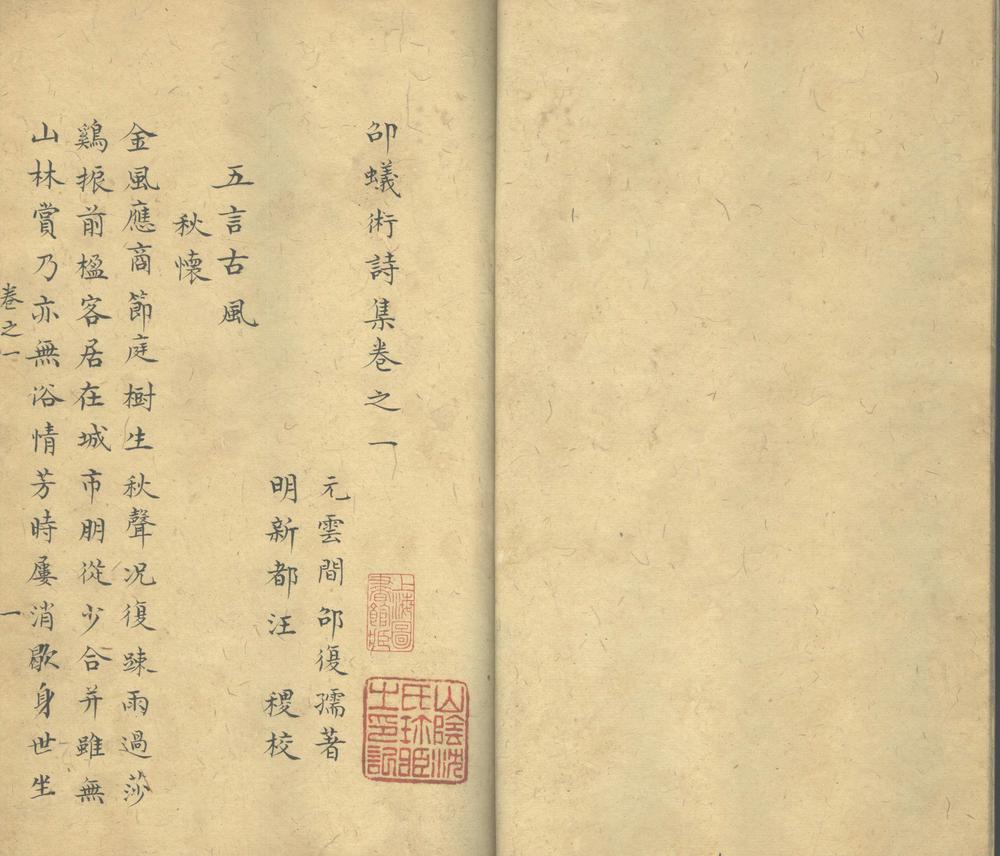 卲蟻術詩集卷之一
元雲間卲復孺著
明新都汪 稷校
五言古風
秋懷
金風應商節庭樹生秋聲况復踈雨過莎
鷄振前楹客居在城市朋從少合并雖無
山林賞乃亦無俗情芳時屢消歇身世坐
卷之一 一
上海圖書館藏
山陰沈氏珎䀠士印記